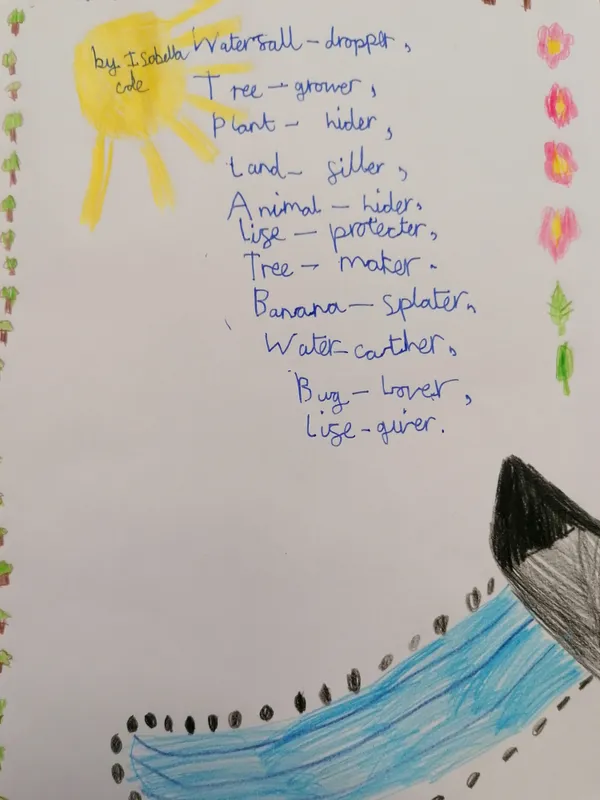 by: Isobella
cole
Waterfall - dropper,
Tree - grower,
Plant - hider,
Land - filler,
Animal - hider,
Life - protecter,
Tree - maker.
Banana - splater,
Water-catcher,
Bug - Lover,
Life-giver.